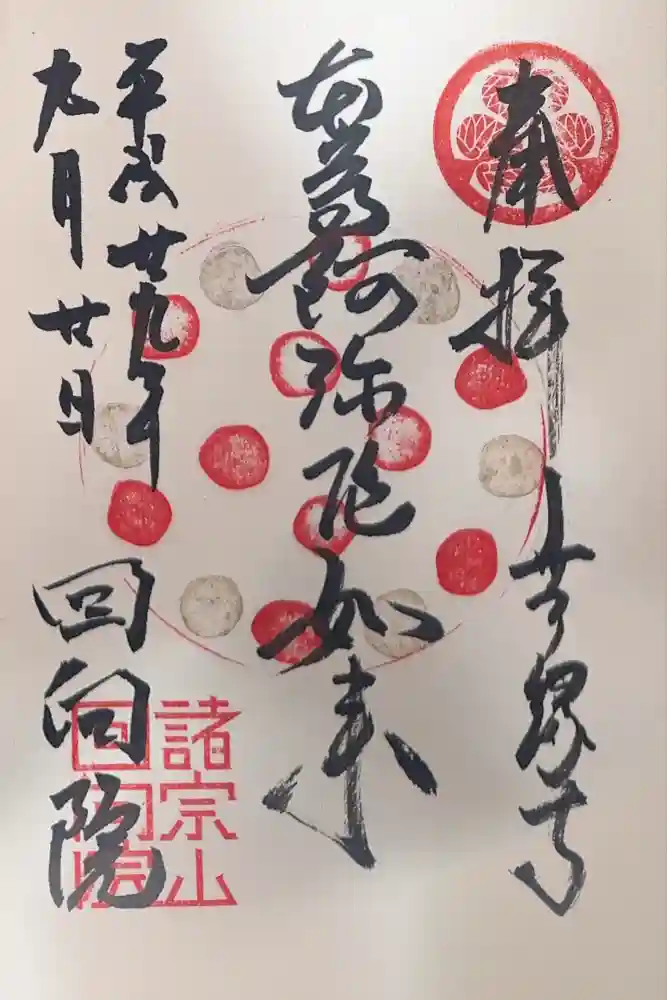 奉拝 無縁寺
本尊阿弥陀如来
平成廿九年
九月廿日
回向院
諸宗山
回向院